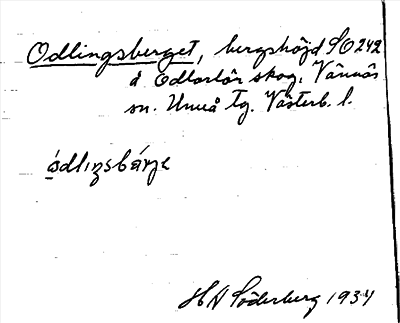 Odlingsberget, bergshöjd SO 242
å Edlarlör skog, Vännäs
sn. Umeå tg. Västerb. l.
ódlıŋsbárjə
H A Söderberg 1934